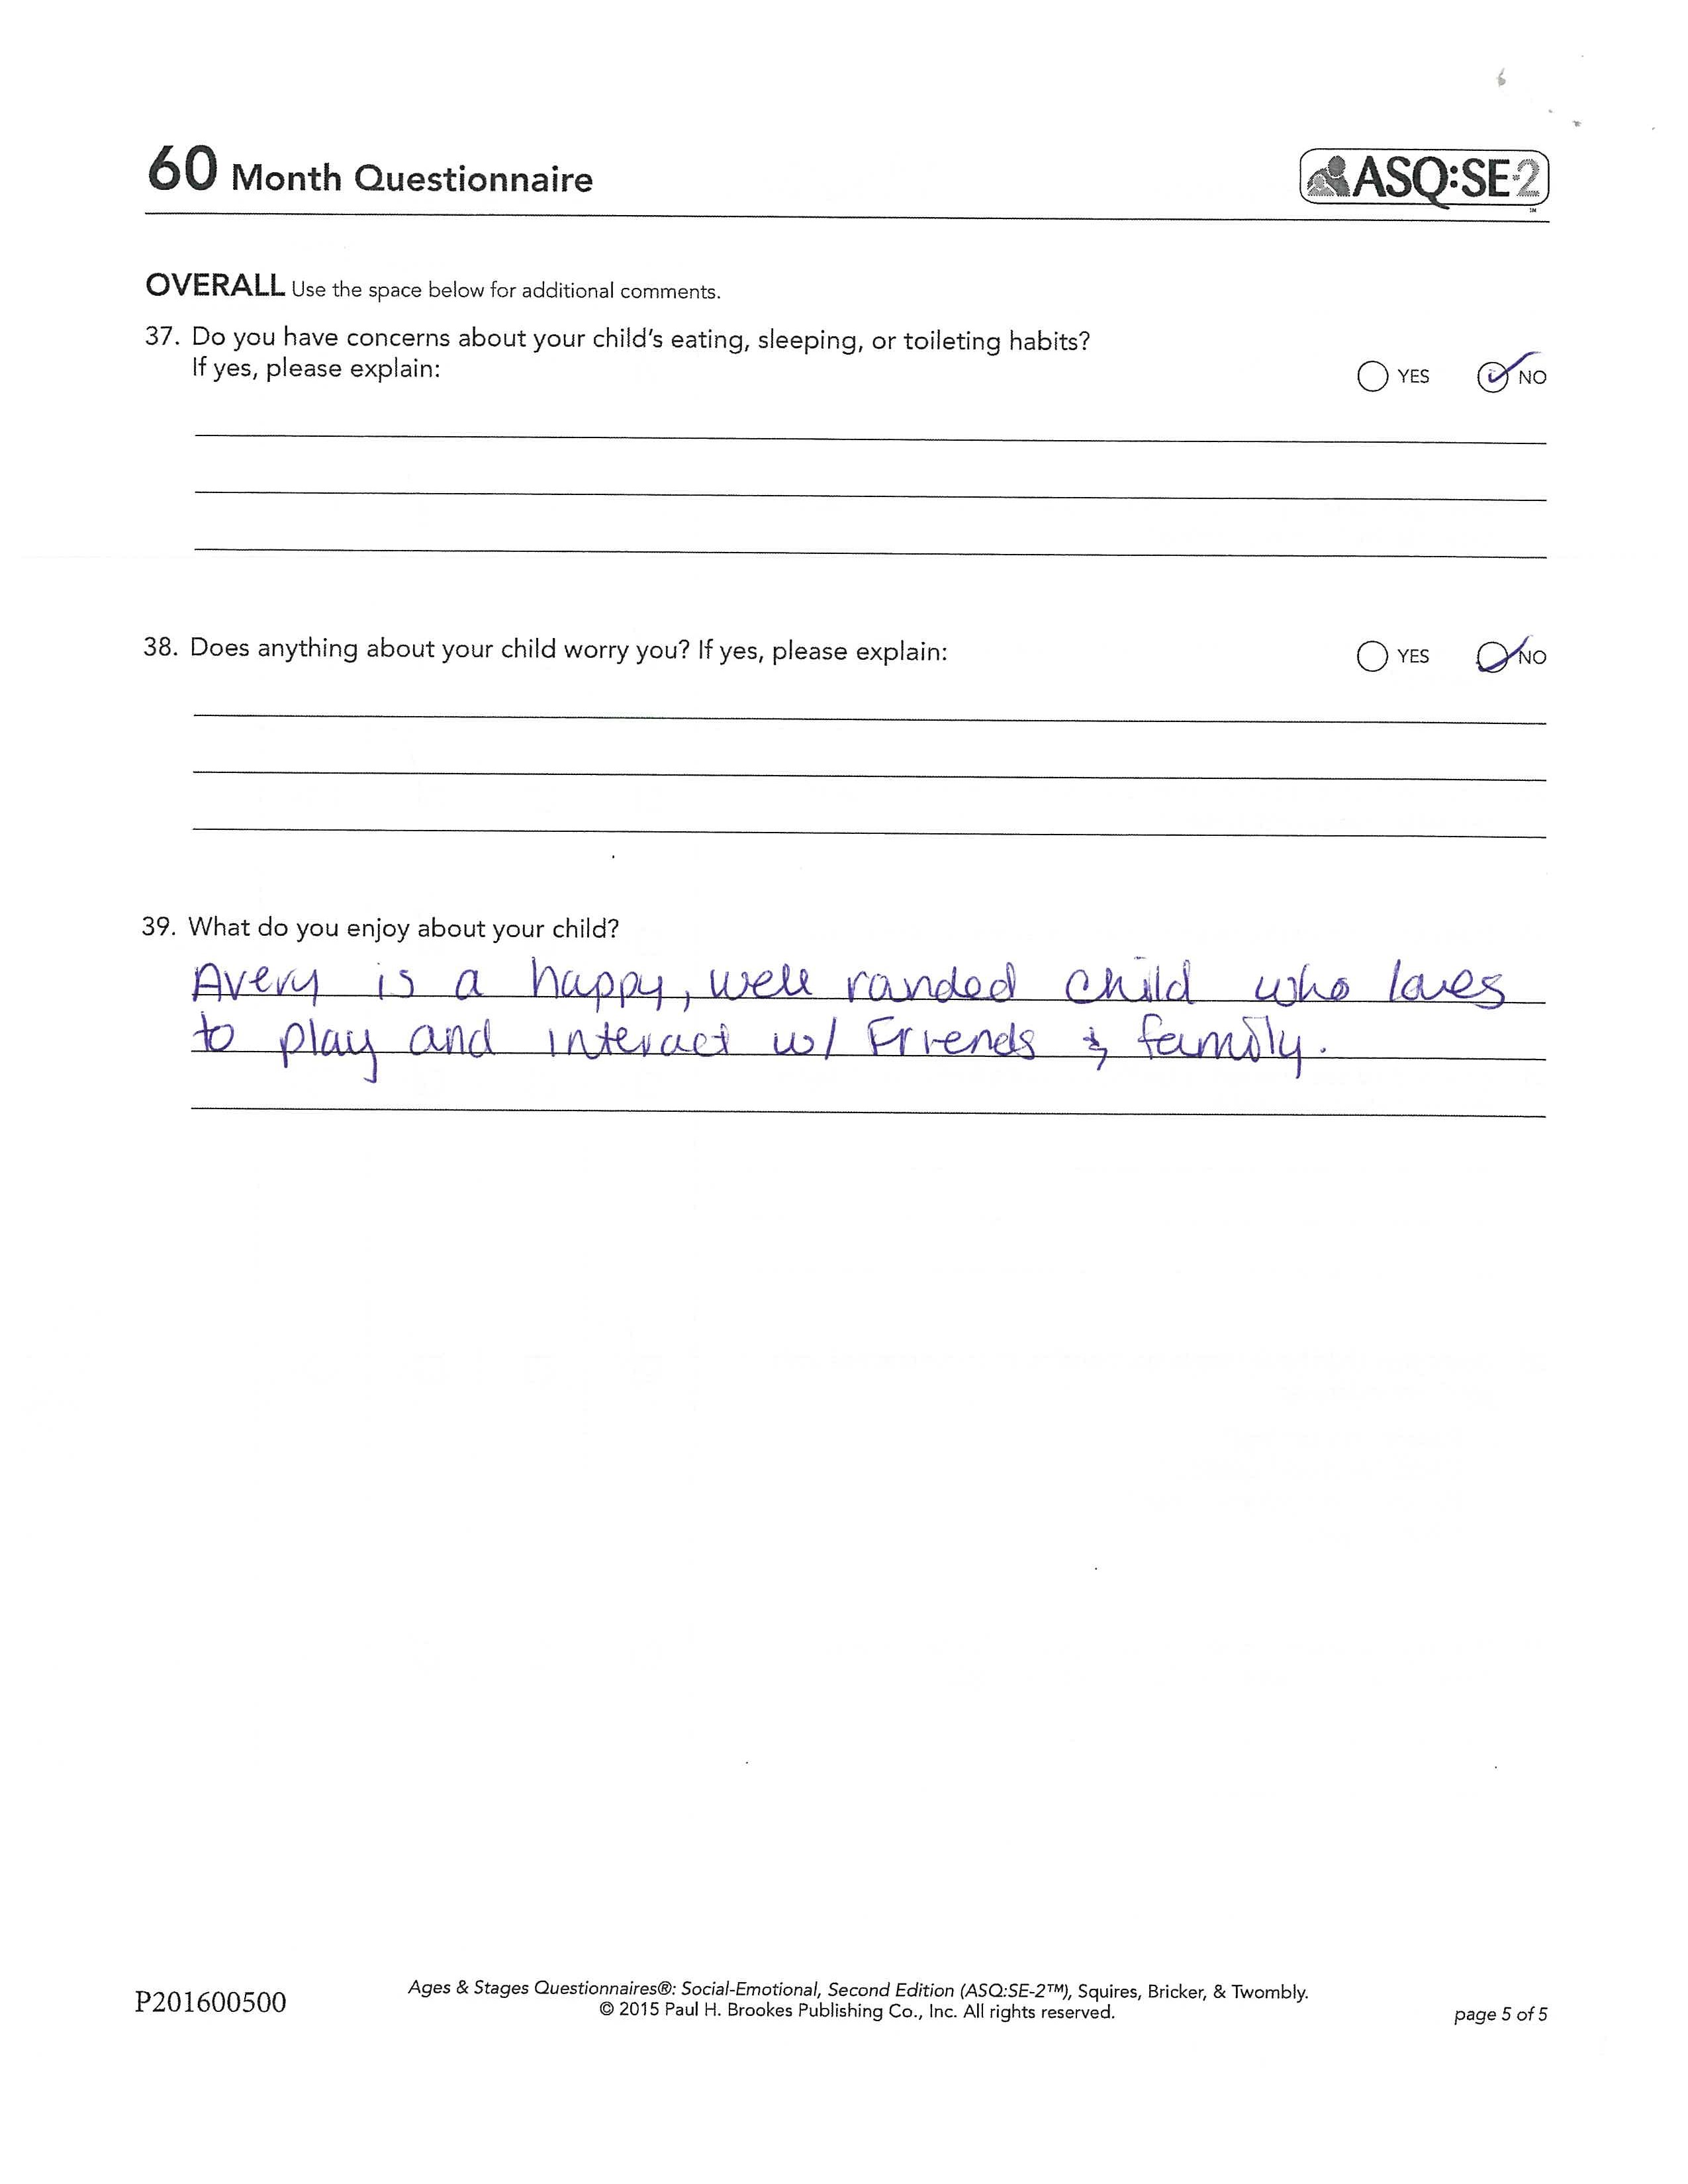 60 Month Questionnaire
ASQ:SE-2™
OVERALL Use the space below for additional comments.
37. Do you have concerns about your child's eating, sleeping, or toileting habits?
If yes, please explain:
YES NO
38. Does anything about your child worry you? If yes, please explain:
YES NO
39. What do you enjoy about your child?
Avery is a happy, well rounded child who loves
to play and interact w/ Friends & family.
P201600500
Ages & Stages Questionnaires®: Social-Emotional, Second Edition (ASQ:SE-2™), Squires, Bricker, & Twombly.
© 2015 Paul H. Brookes Publishing Co., Inc. All rights reserved.
page 5 of 5